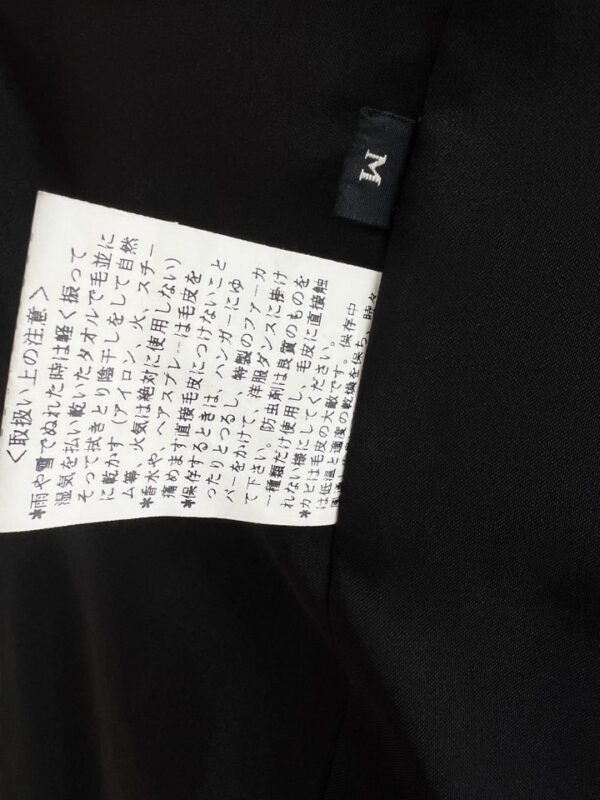 M
<取扱い上の注意>
*雨や雪でぬれた時は軽く振って
湿気を払い乾いたタオルで毛並に
そって拭きとり陰干しをして自然
に乾かす（アイロン、火、スチー
ム等、火気は絶対に使用しない）
*香水や、ヘアスプレーは毛皮を
痛めます直接毛皮につけないこと
*保存するときは、ハンガーにゆ
ったりとつるし、特製のファーカ
バーをかけて、洋服ダンスに掛け
て下さい。防虫剤は良質のものを
一種類だけ使用し、毛皮に直接触
れない様にしてください。
*カビは毛皮の大敵です。保存中
は低温と適度の乾燥を保ち、時々